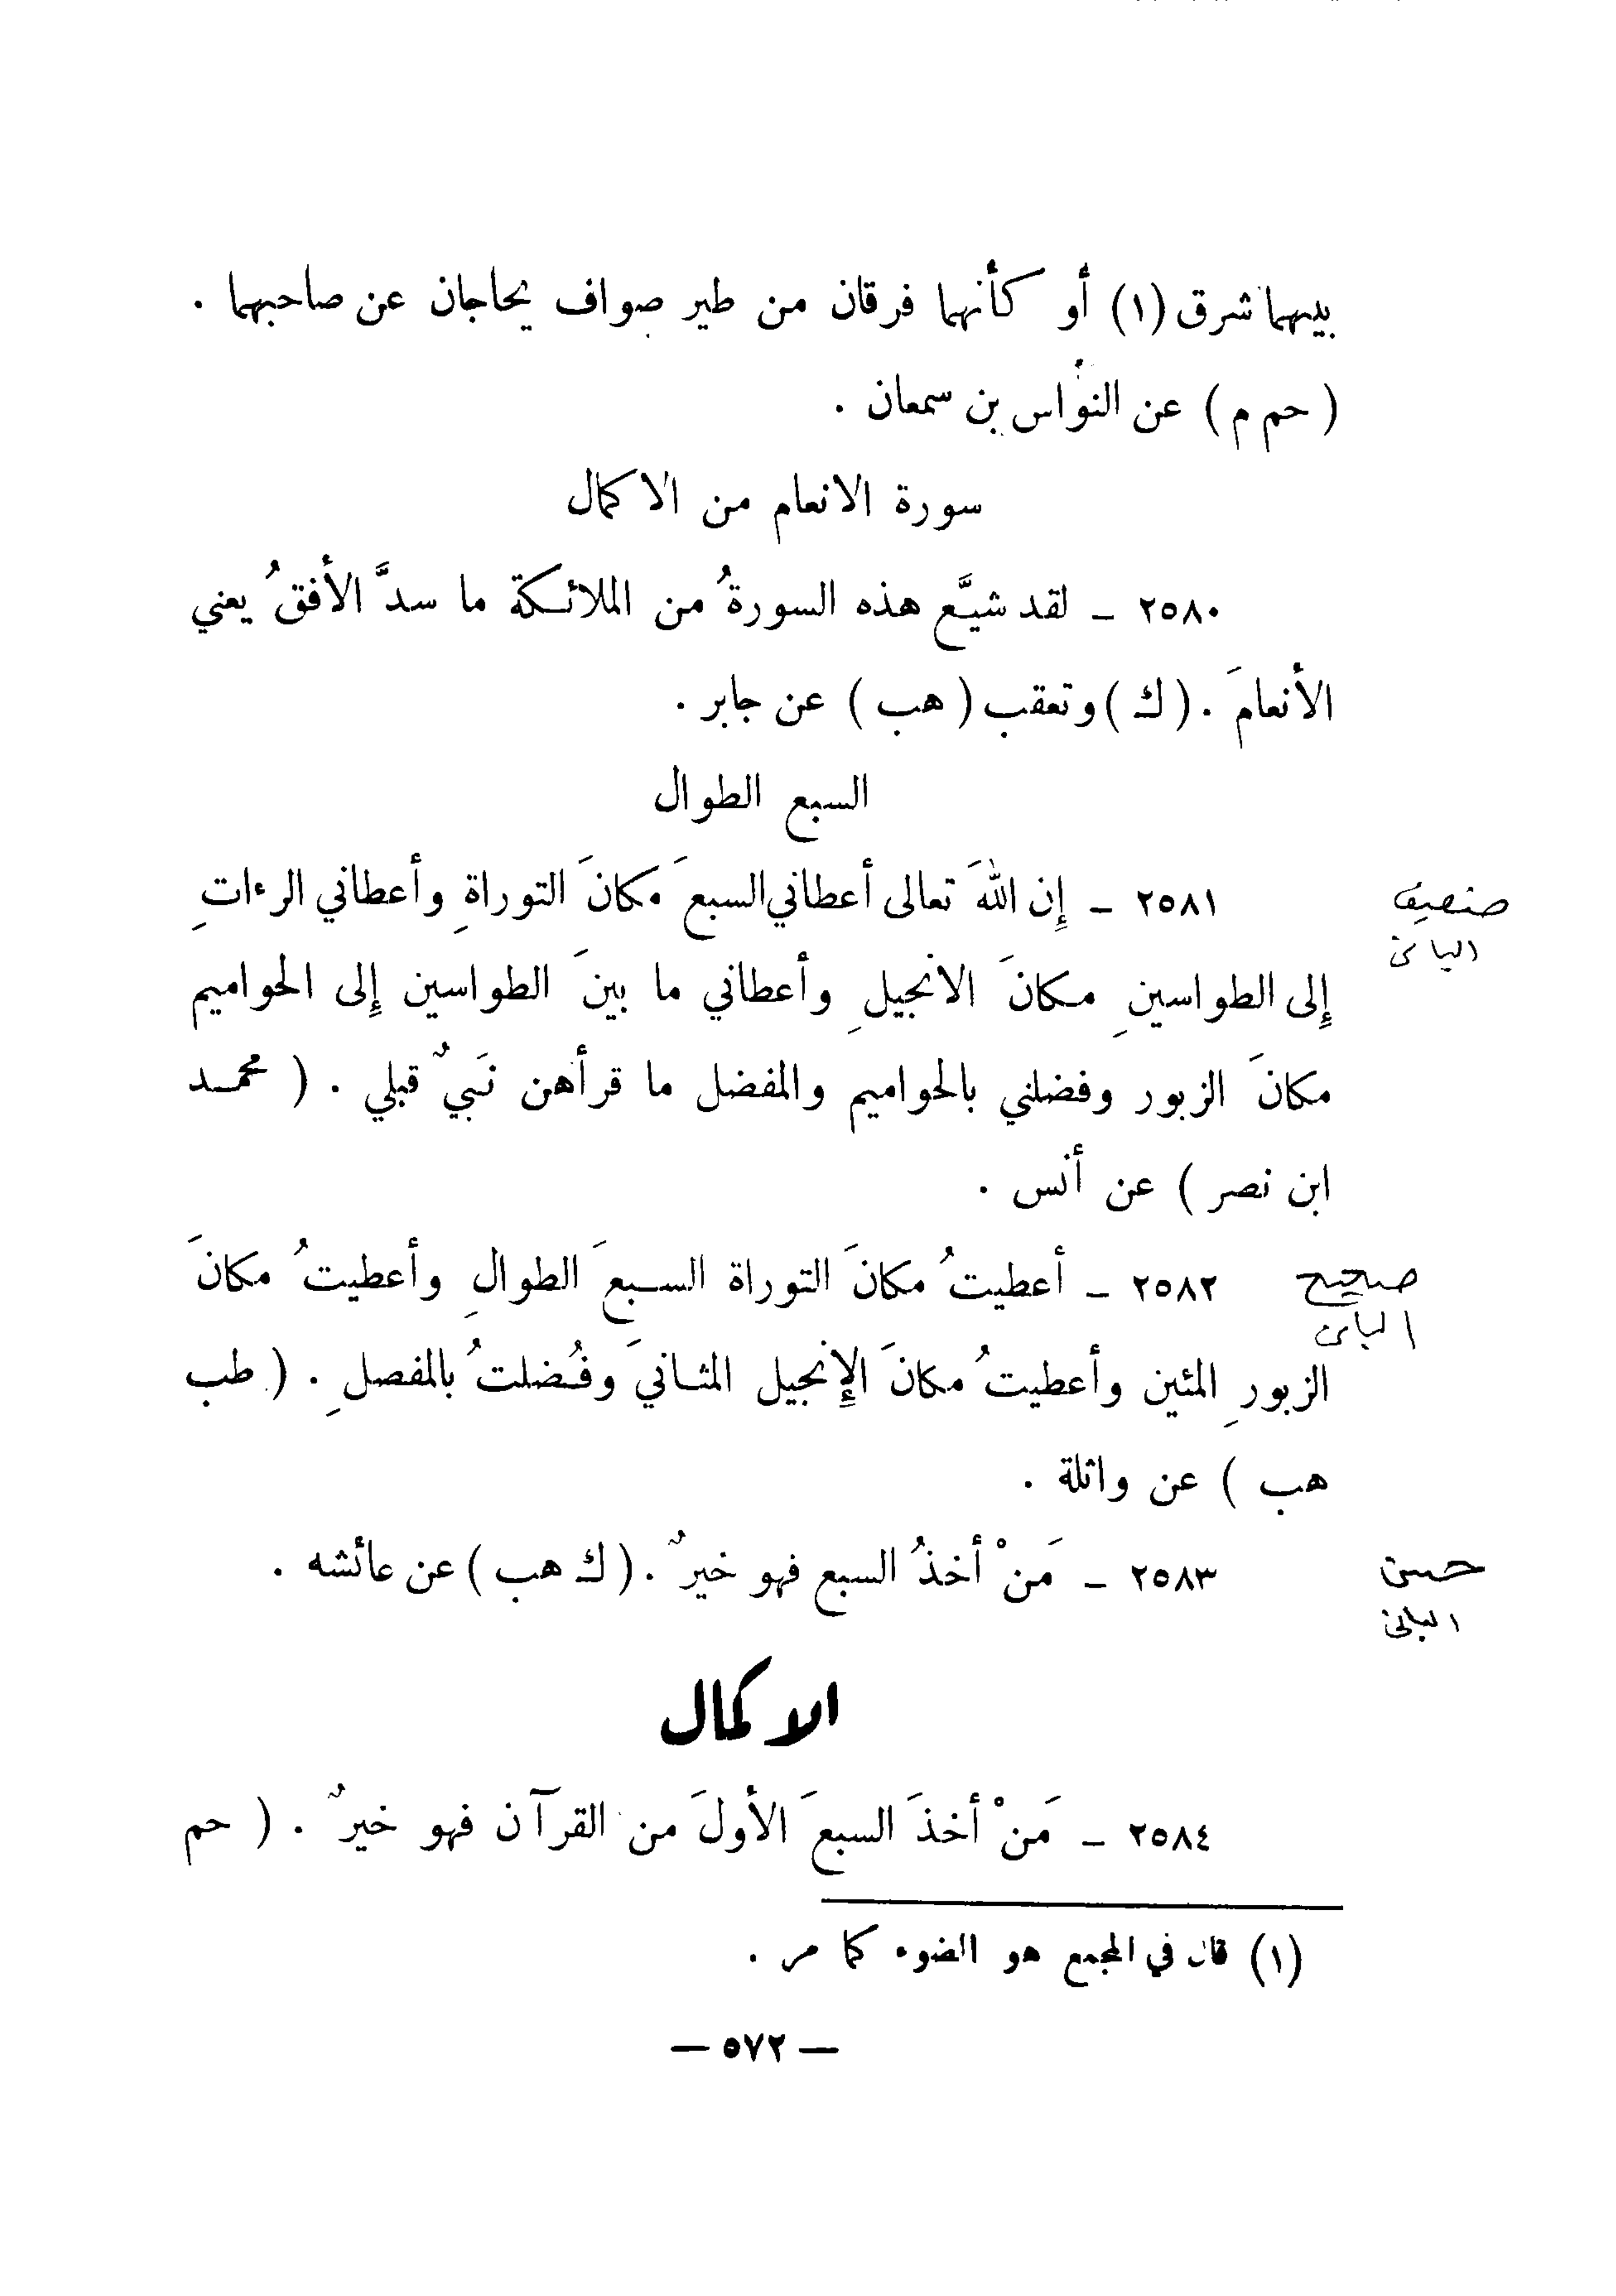 بينهما شرق (١) أو كأنهما فرقان من طير صواف يحاجان عن صاحبهما .
( حم م ) عن النوّاس بن سمعان .
سورة الانعام من الاكمال
٢٥٨٠ ـ لقد شيَّع هذه السورةُ من الملائكة ما سدَّ الأفقُ يعني
الأنعامَ . ( ك ) وتعقب ( هب ) عن جابر .
السبع الطوال
٢٥٨١ ـ إِن اللهَ تعالى أعطاني السبعَ مكانَ التوراةِ وأعطاني الرءاتِ
ضعيف
الباني
إِلى الطواسينِ مكانَ الانجيلِ وأعطاني ما بينَ الطواسين إِلى الحواميم
مكانَ الزبور وفضلني بالحواميم والمفضل ما قرأهن نَبيٌ قبلي . ( محمد
ابن نصر ) عن أنس .
٢٥٨٢ ـ أعطيتُ مكانَ التوراة السبعَ الطوالِ وأعطيتُ مكانَ
صحيح
الباني
الزبورِ المئين وأعطيتُ مكانَ الإِنجيل المثانيَ وفُضلتُ بالمفصلِ . ( طب
هب ) عن واثلة .
٢٥٨٣ ـ مَنْ أخذُ السبع فهو خيرٌ . ( ك هب ) عن عائشه .
حسن
الباني
الاكمال
٢٥٨٤ ـ مَنْ أخذَ السبعَ الأولَ من القرآن فهو خيرٌ . ( حم
(١) قال في المجمع هو الضوء كما مر .
— ٥٧٢ —